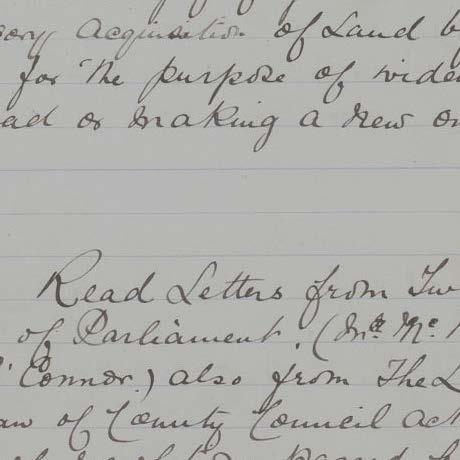 sory Acquisition of Land b
for the purpose of wide
ad or making a new on
Read Letters from Tw
of Parliament. (Mr Mc
Connor.) also from The L
aw of County Council act